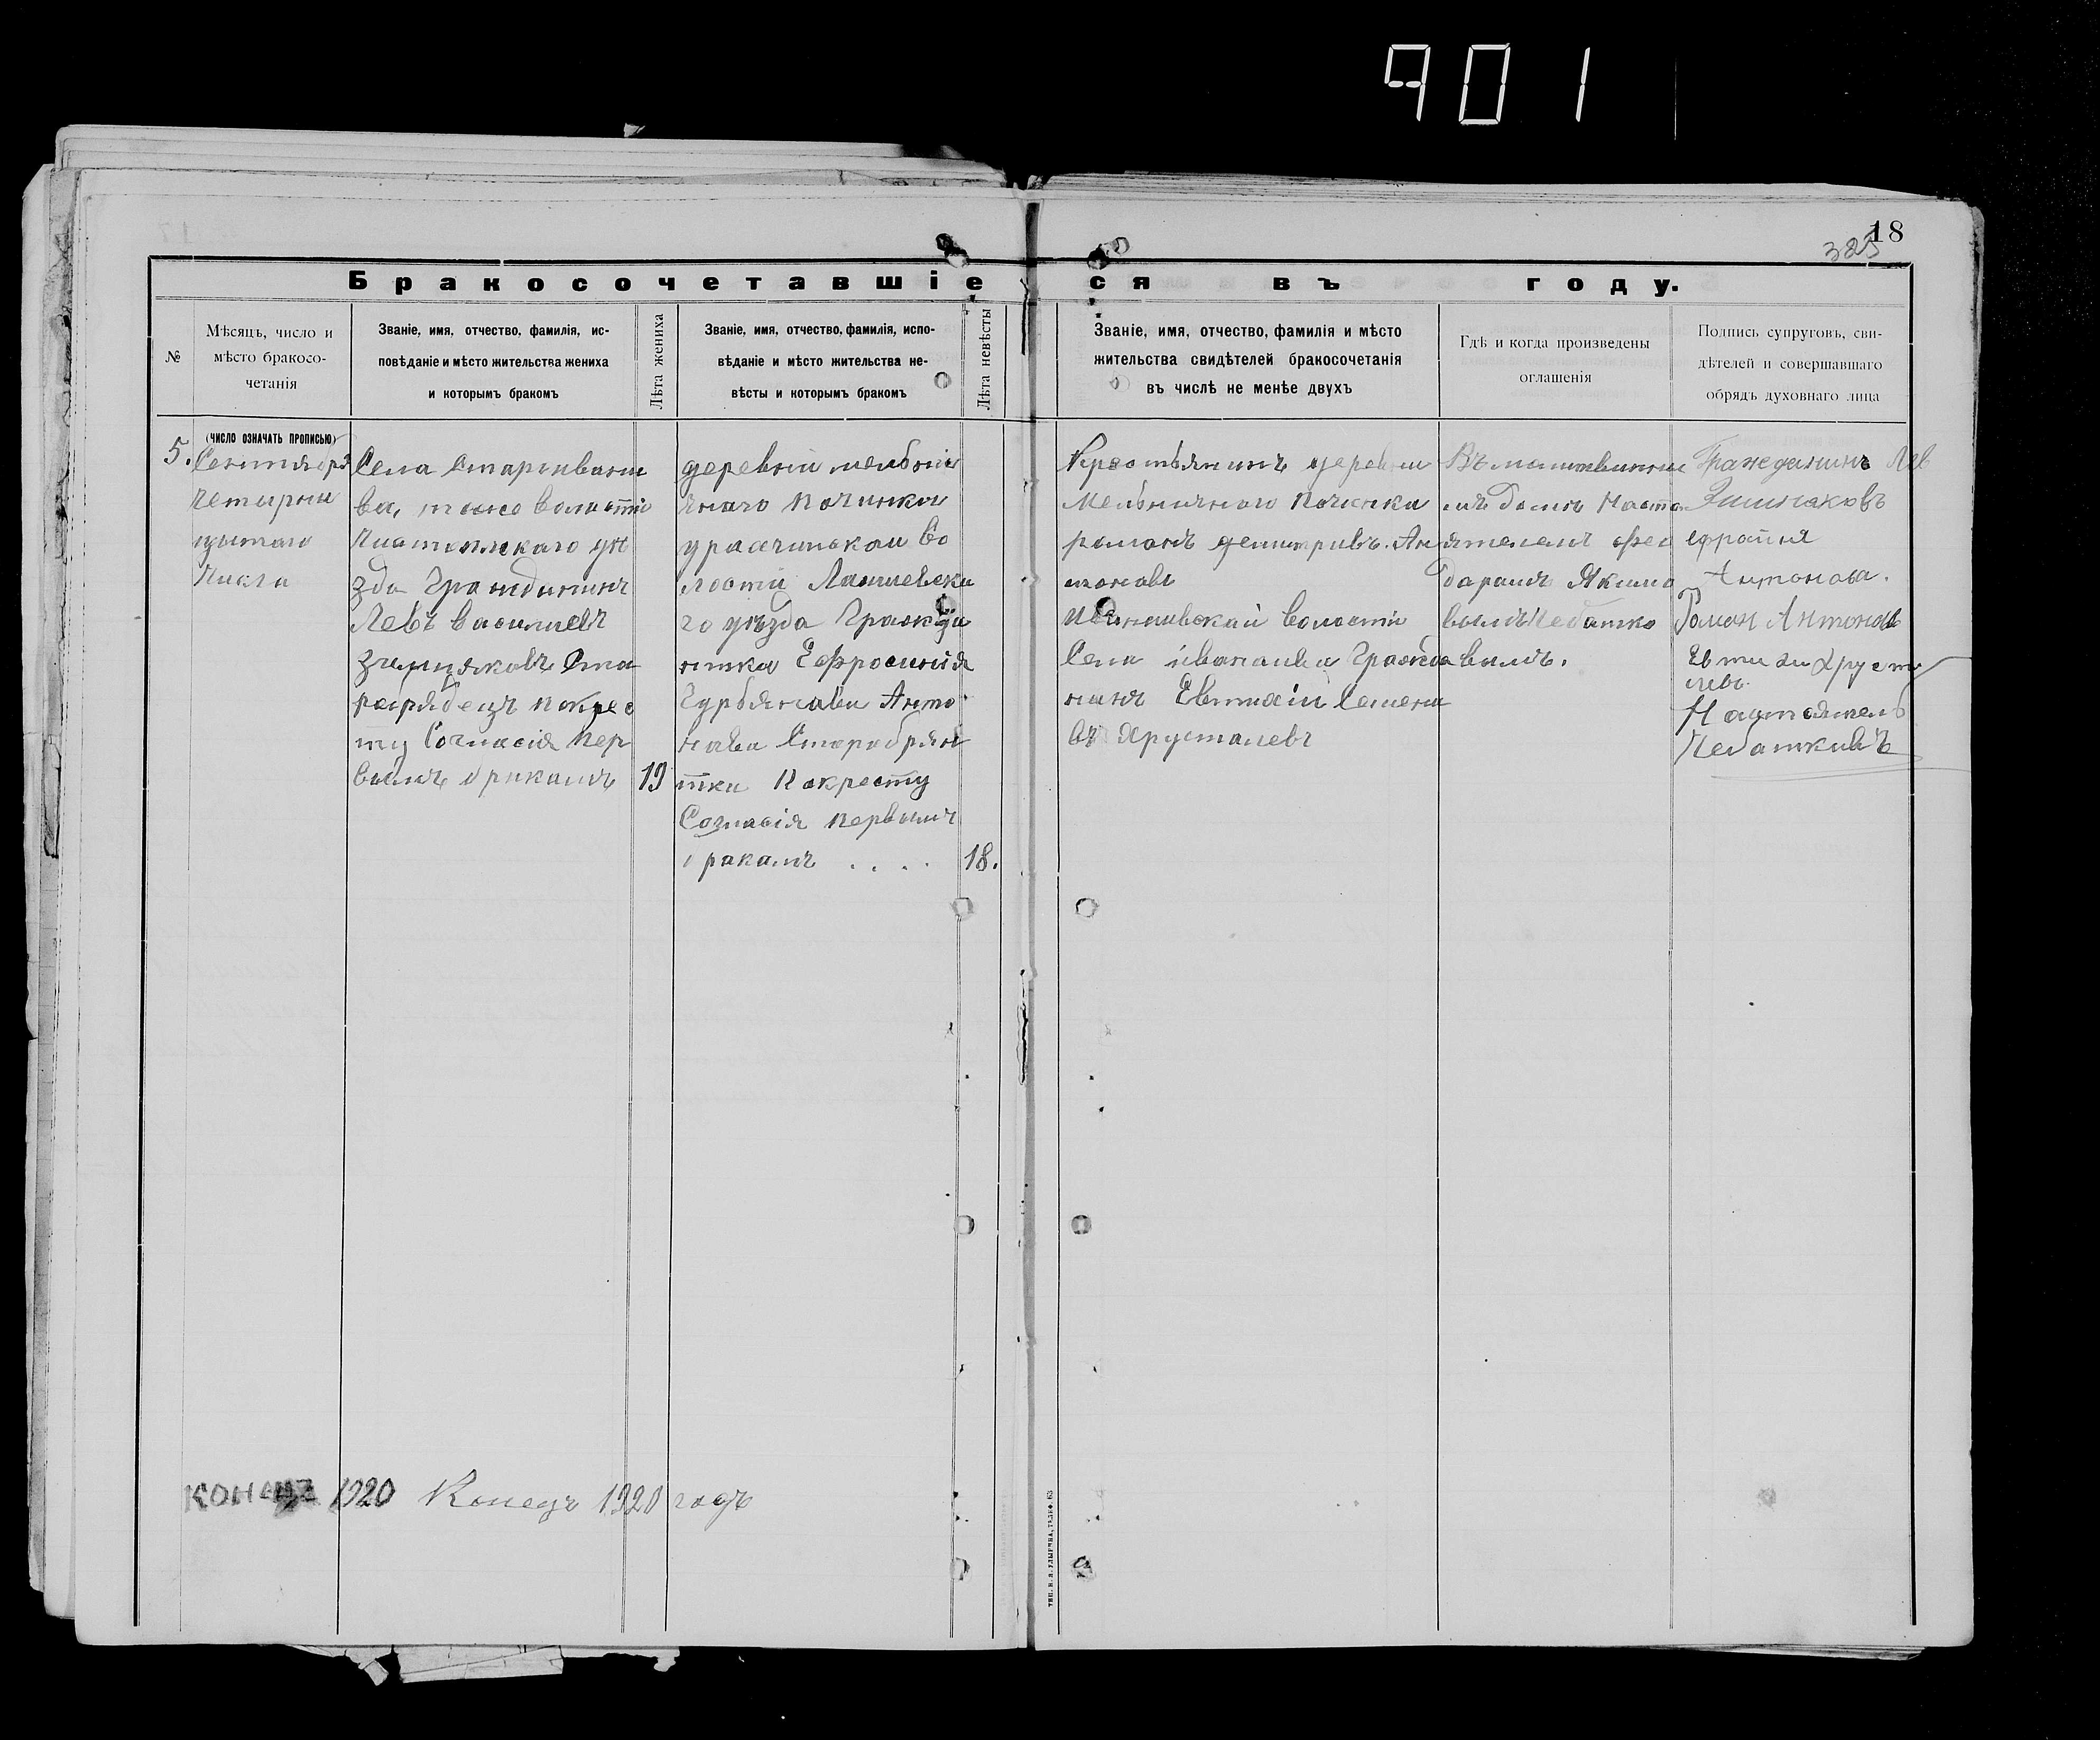 901
18
385
Бракосочетавшіеся въ году.
№
Мѣсяцъ, число и
мѣсто бракосо-
четанія
Званіе, имя, отчество, фамилія, ис-
повѣданіе и мѣсто жительства жениха
и которымъ бракомъ
Лѣта жениха
Званіе, имя, отчество, фамилія, испо-
вѣданіе и мѣсто жительства не-
вѣсты и которымъ бракомъ
Лѣта невѣсты
Званіе, имя, отчество, фамилія и мѣсто
жительства свидѣтелей бракосочетанія
въ числѣ не менѣе двухъ
Гдѣ и когда произведены
оглашенія
Подпись супруговъ, сви-
дѣтелей и совершавшаго
обрядъ духовнаго лица
(число означать прописью)
5.
Сентября
четырна
цытаго
числа
Села Стараивашки
ва, тоже воластіи
уѣ
зда Гражданинъ
Левъ васильевъ
Зимняковъ Ста
рарябецъ покрес
ту Согласія пер
вымъ бракамъ
19
деревни мельни
чнаго Починки
волостіи Лаишевска
го уѣзда Гражда
нтка Ефросинія
Анто
нава Старобрян
тка Покресту
Согласія первымъ
бракамъ . . . .
18.
Крестьянинъ деревни
Мельничнаго Починки
раманъ дмитривъ. Ан
тонавъ
воластіи
Села ивановка Гражда
нинъ Евтихіи Семени
въ Хрусталевъ
Въ малитвинны
мъ домъ Наста
ятелемъ фео
дарамъ Якимо
вымъ Чебатко
вымъ.
Гражеданинъ Лев
Зимнаковъ
ефрасиния
Антонова.
Роман Антонов
Евтихи Хруст
левъ
Настоятель
Чебатковъ
1920 Конецъ 1920 годъ